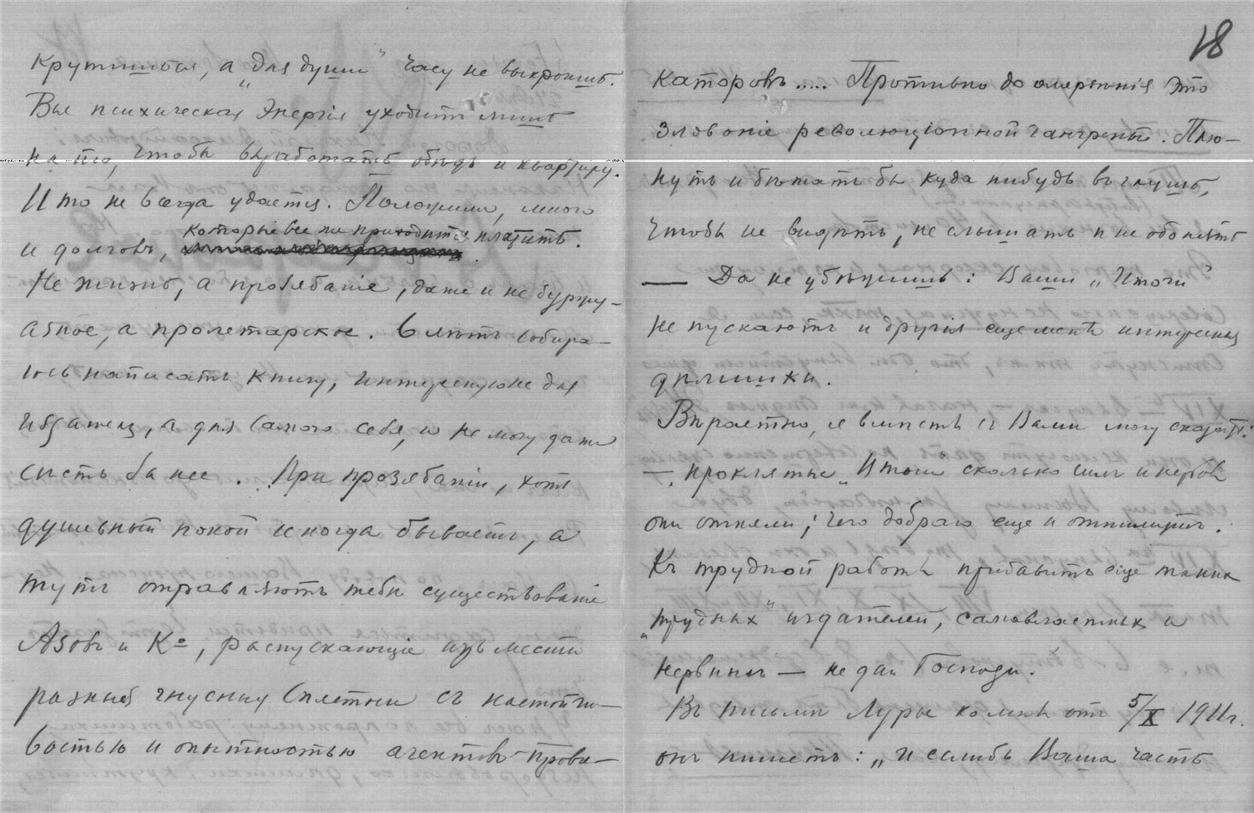 крутишься, а „для души" часу не выкроишь.
Вся психическая энергія уходитъ лишь
на то, чтобы выработать обѣдъ и квартиру.
И то не всегда удается. Положимъ, много
и долговъ, которые все же приходится платить.
Не жизнь, а прозябаніе, даже и не буржу-
азное, а пролетарское. Слѣтъ собира-
юсь написать книгу, интересную не для
издателя, а для самого себя, и не могу даже
сѣсть за нее. При прозябаніи, хотя
душевный покой иногда бываетъ, а
тутъ отравляютъ тебѣ существованіе
Азовъ и Кº, распускающіе изъ мести
разныя гнусныя сплетни съ настойчи-
востью и опытностью агентовъ-прово-
18
каторовъ.... Противно до омерзѣнія это
зловоніе революціонной гангрены. Плю-
нуть и бѣжать бы куда нибудь въ глушь,
чтобы не видѣть, не слышать и не обонять
— Да не убѣжишь: Ваши „Итоги"
не пускаютъ и другія еще менѣе интересныя
дѣлишки.
Вѣроятно, я вмѣстѣ съ Вами могу сказать:
— „проклятые „Итоги" сколько силъ и нервовъ
они отняли; чего добраго еще и отнимутъ.
Къ трудной работѣ прибавить еще такихъ
„трудныхъ" издателей, самовластныхъ и
нервныхъ — не дай Господи.
Въ письмѣ Лурье ко мнѣ отъ 5/X 1911 г.
онъ пишетъ: „и если бъ Ваша часть